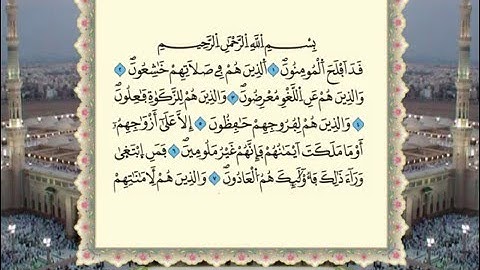 بِسْمِ اِللَّهِ اِلرَّحْمَٰنِ اِلرَّحِيمِ
قَدَ اَفْلَحَ اَلْمُومِنُونَ ١ اَلذِينَ هُمْ فِي صَلَاتِهِمْ خَٰشِعُونَ ٢
وَالذِينَ هُمْ عَنِ اِللَّغْوِ مُعْرِضُونَ ٣ وَالذِينَ هُمْ لِلزَّكَوٰةِ فَٰعِلُونَ
٤ وَالذِينَ هُمْ لِفُرُوجِهِمْ حَٰفِظُونَ ٥ إِلَّا عَلَىٰ أَزْوَٰجِهِمُۥٓ
أَوْ مَا مَلَكَتَ اَيْمَٰنُهُمْ فَإِنَّهُمْ غَيْرُ مَلُومِينَ ٦ فَمَنِ اِبْتَغَىٰ
وَرَآءَ ذَٰلِكَ فَأُوْلَٰٓئِكَ هُمُ اُلْعَادُونَ ٧ وَالذِينَ هُمْ لِأَمَٰنَٰتِهِمْ